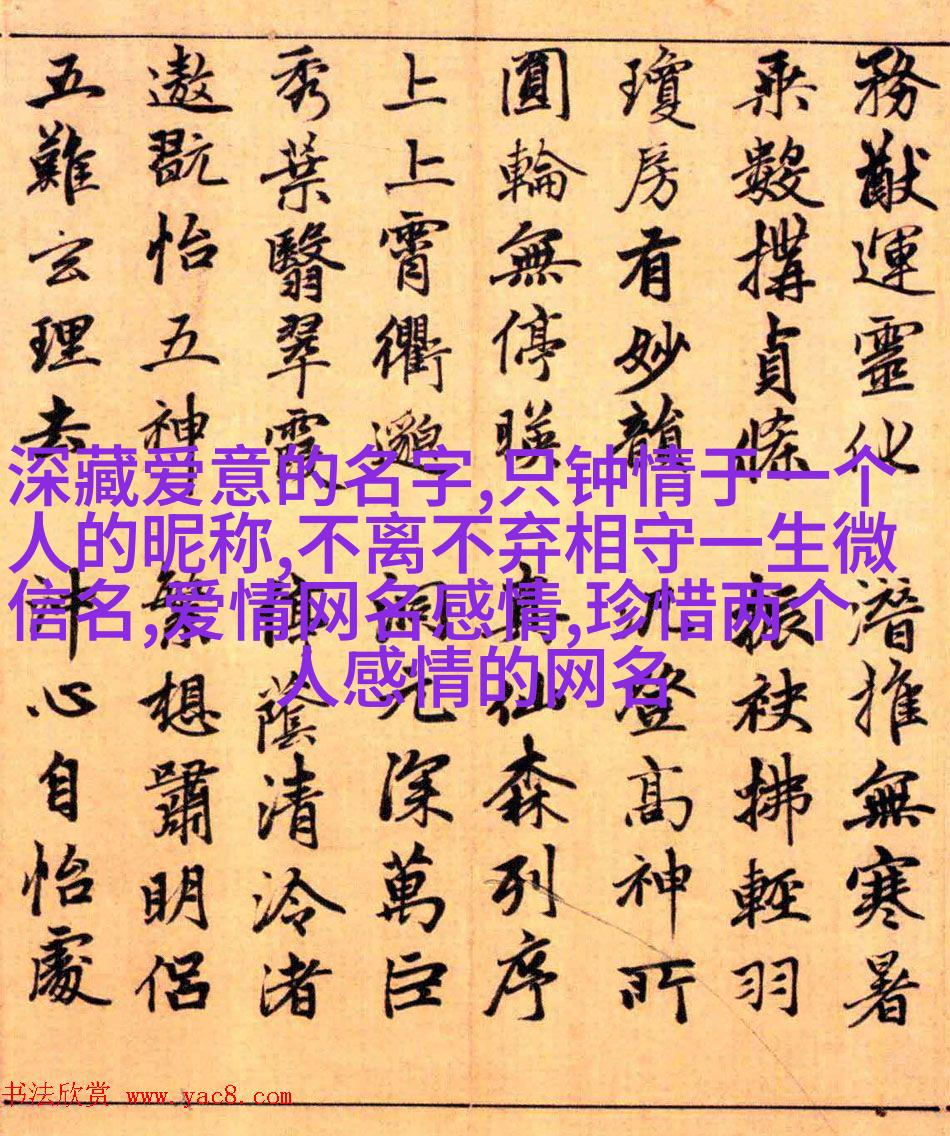 務猷運靈化潛推無寒暑
乘數搆貞條振袂拂輕羽
瓊房有妙韻九登高神所
圓輪無停暎真仙森列序
上上霄衢邈元深萬巨
秀葉翳翠霞蔭清泠渚
遨翫怡五神繁想嘯明侶
五難玄理去計心自怡處
深藏爱意的名字,只钟情于一个
人的昵称,不离不弃相守一生微
信名,爱情网名感情,珍惜两个
人感情的网名
书法欣赏 www.yac8.com